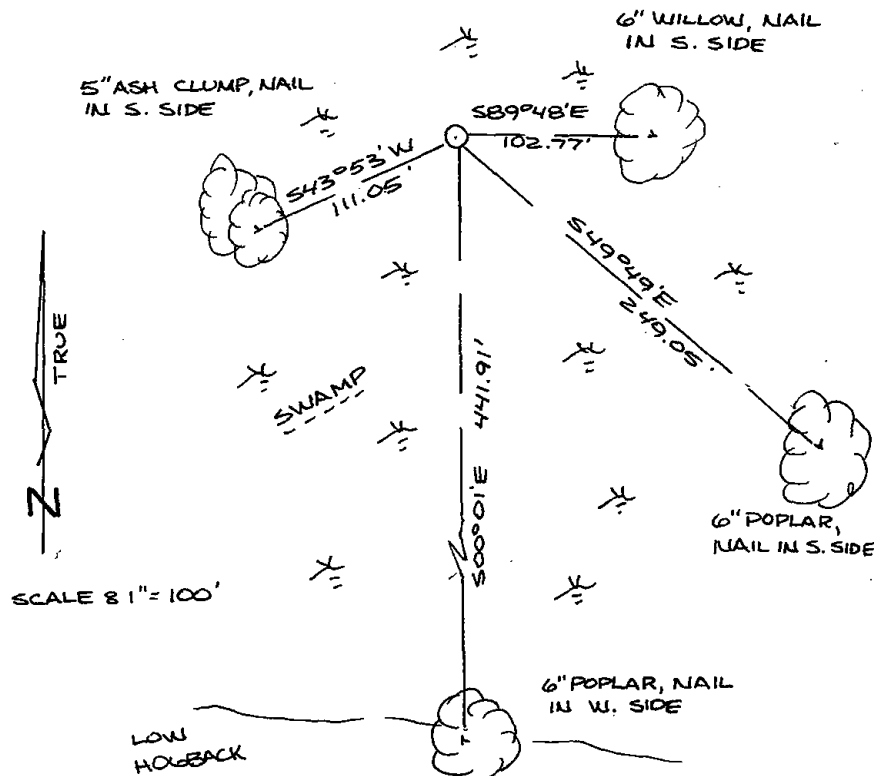 6" WILLOW, NAIL
IN S. SIDE
5" ASH CLUMP, NAIL
IN S. SIDE
S89°48'E
102.77'
S43°53'W
111.05'
S49°49'E
249.05'
TRUE
N
SWAMP
S00°01'E 441.91'
6" POPLAR,
NAIL IN S. SIDE
SCALE 8 1" = 100'
6" POPLAR, NAIL
IN W. SIDE
LOW
HOGBACK